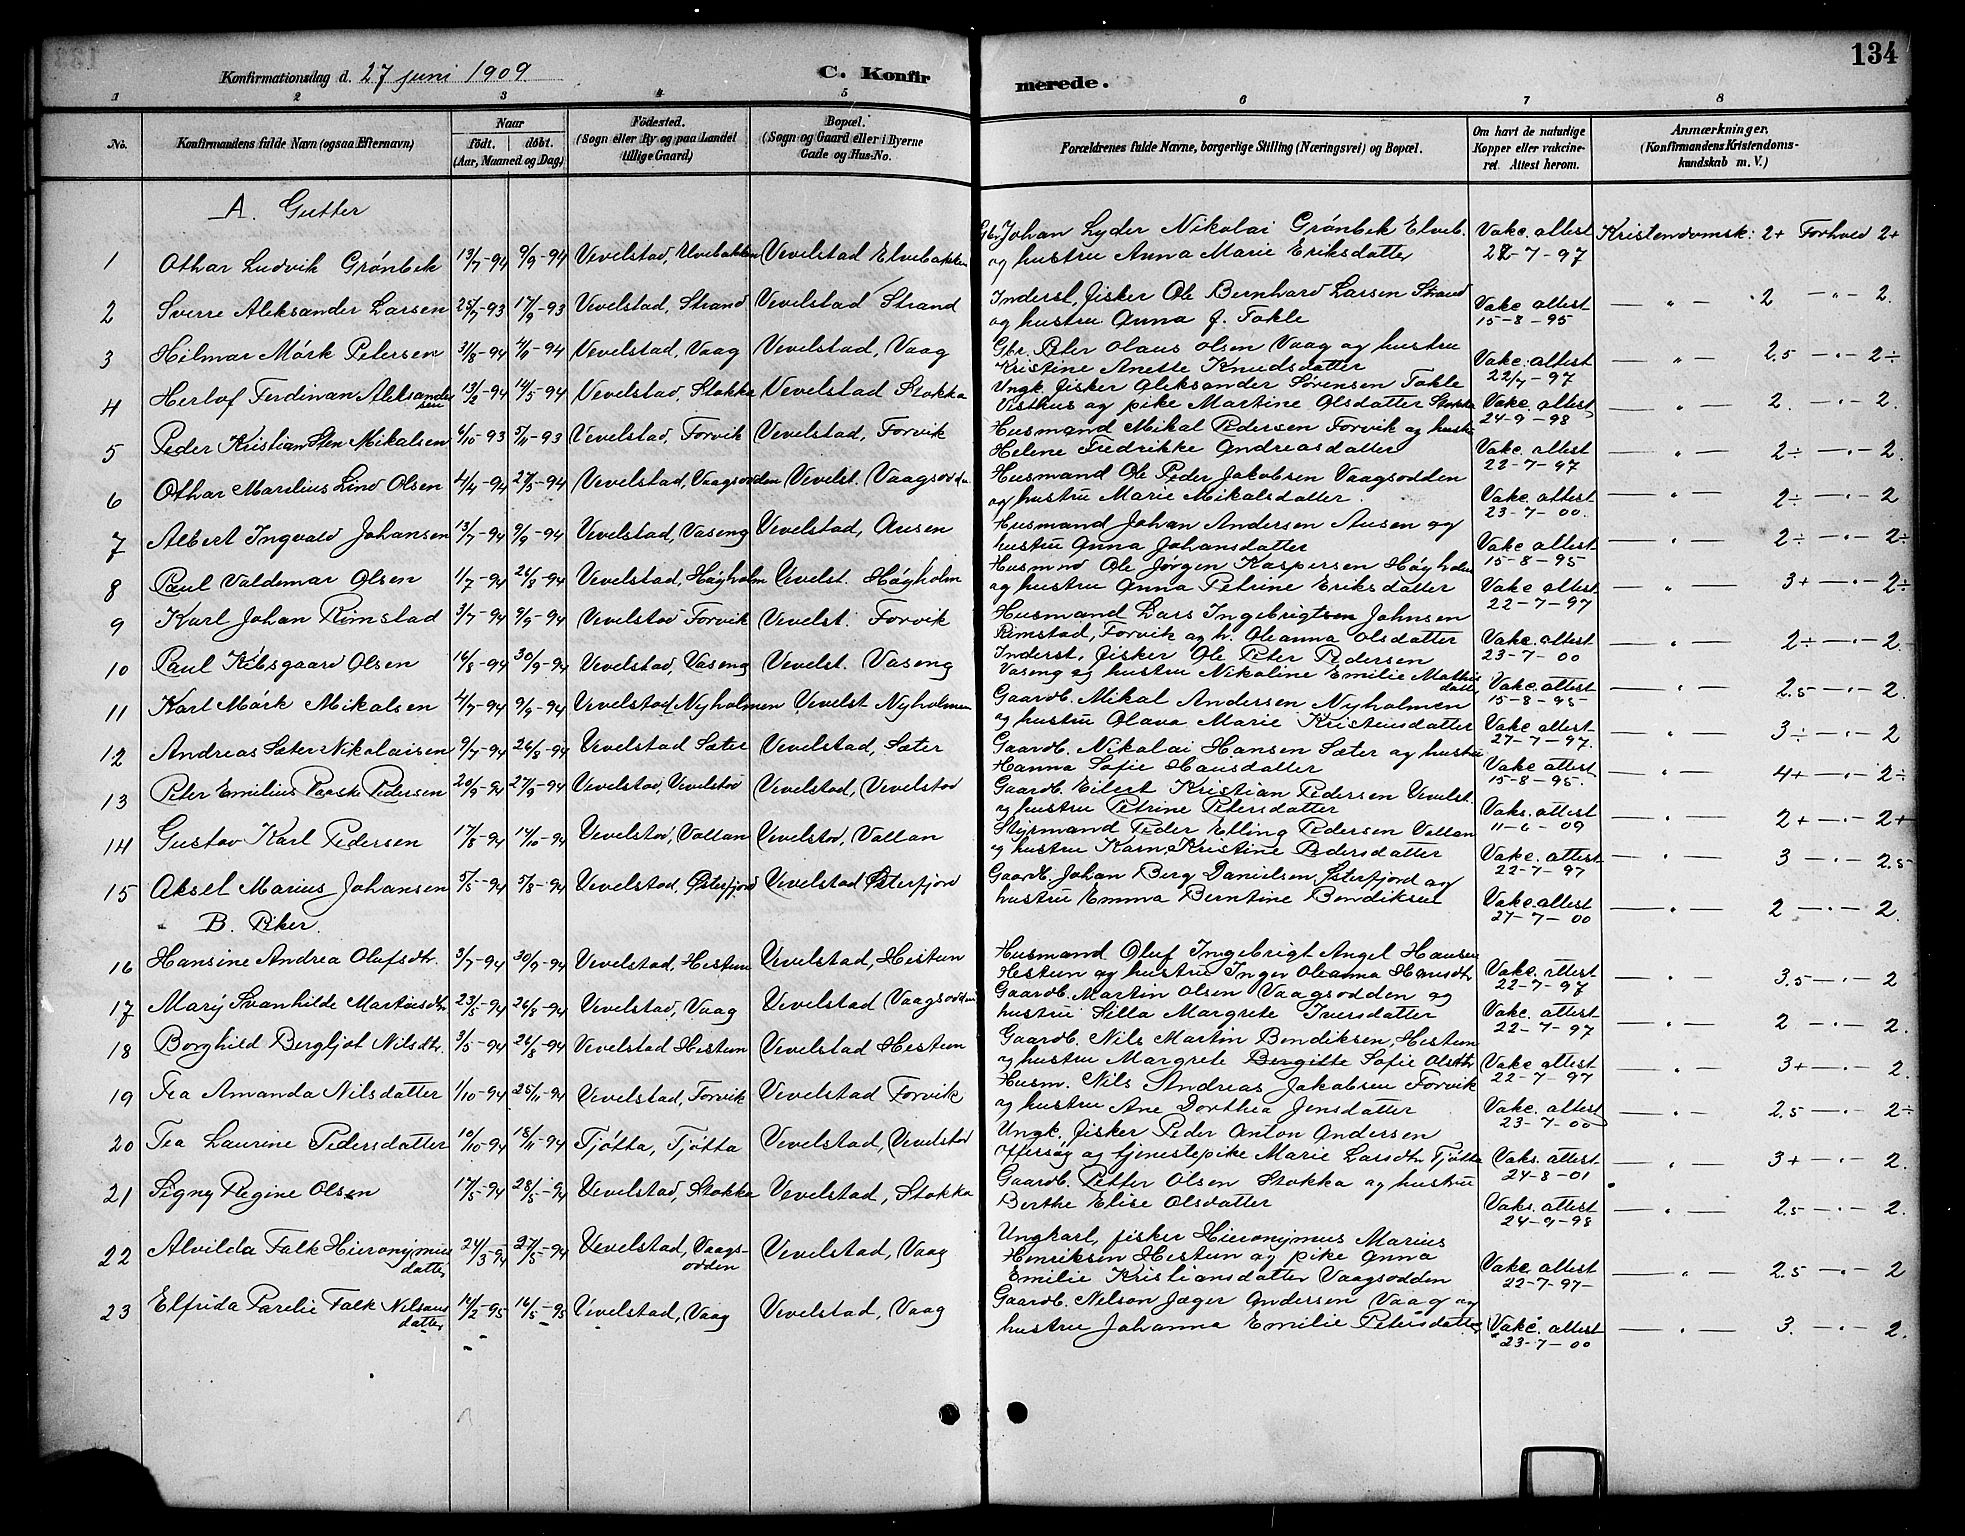 134
Konfirmationsdag d. 27 juni 1909
C. Konfirmerede.
1 2 3 4 5 6 7 8
No. | Konfirmandens fulde Navn (ogsaa Efternavn) | Naar født. døbt. (Aar, Maaned og Dag) | Fødested. (Sogn eller By og paa Landet tillige Gaard) | Bopæl. (Sogn og Gaard eller i Byerne Gade og Hus-No. | Forældrenes fulde Navne, borgerlige Stilling (Næringsvei) og Bopæl. | Om havt de naturlige Kopper eller vakcineret. Attest herom. | Anmærkninger. (Konfirmandens Kristendomskundskab m. V.)
A. Gutter
1 Othar Ludvik Grønbek 13/7-94 9/9-94 Vevelstad, Elvebakken Vevelstad Elvebakken Gbr. Johan Lyder Nikolai Grønbek Elveb. og hustru Anna Marie Eriksdatter Vakc. attest 22-7-97 Kristendomsk: 2+ Forhold 2+
2 Sverre Aleksander Larsen 25/7-93 17/9-93 Vevelstad, Strand Vevelstad Strand Inderst, fisker Ole Bernhard Larsen Strand og hustru Anna f. Fokle Vakc. attest 15-8-95 — " — 2 — " — 2.
3 Hilmar Mørk Petersen 31/8-94 -94 Vevelstad, Vaag Vevelstad, Vaag Gbr. Peter Olaus Olsen Vaag og hustru Kristine Anette Knudsdatter Vakc. attest 22/7-97 — " — 2.5 — " — 2÷
4 Herlof Ferdinan Aleksandersen 13/2-94 14/5-94 Vevelstad, Stokka Vevelstad Stokka Ungk. fisker Aleksander Sørensen Fokle Visthus og pike Martine Olsdatter Stokka Vakc. attest 24-9-98 — " — 2. — " — 2.
5 Peder Kristian Sten Mikalsen 6/10-93 5/11-93 Vevelstad, Forvik Vevelstad, Forvik Husmand Mikal Pedersen Forvik og hustru Helene Fredrikke Andreasdatter Vakc. attest 22-7-97 — " — 2÷ — " — 2.
6 Othar Marelius Lind Olsen 4/4-94 27/5-94 Vevelstad, Vaagsodden Vevelst. Vaagsodden Husmand Ole Peder Jakobsen Vaagsodden og hustru Marie Mikalsdatter. Vakc. attest 23-7-00. — " — 2÷ — " — 2
7 Albert Ingvald Johansen 13/7-94 9/9-94 Vevelstad, Vaseng Vevelstad, Ausen Husmand Johan Andersen Ausen og hustru Anna Johansdatter Vakc attest 15-8-95 — " — 2÷ — " — 2÷
8 Paul Valdemar Olsen 1/7-94 26/8-94 Vevelstad, Høyholm Vevelst. Høyholm Husmnd Ole Jørgen Kaspersen Høyholm og hustru Anna Petrine Eriksdatter Vakc attest. 22-7-97 — " — 3+ — " — 2÷
9 Karl Johan Rimstad 3/7-94 9/9-94 Vevelstad Forvik Vevelst. Forvik Husmand Lars Ingebrigtsen Johnsen Rimstad, Forvik og h. Oleanna Olsdatter Vakc. attest 23-7-00 — " — 2÷ — " — 2.
10 Paul Kibsgaard Olsen 16/8-94 30/9-94 Vevelstad, Vaseng Vevelst. Vaseng Inderst, fisker Ole Peter Pedersen Vaseng og hustru Nikoline Emilie Mathisdatter Vakc. attest 15-8-95 — " — 2.5 — " — 2.
11 Karl Mørk Mikalsen 4/7-94 9/9-94 Vevelstad Nyholmen Vevelst Nyholmen Gaardb. Mikal Andersen Nyholmen og hustru Olava Marie Kristensdatter Vakc. attest 27-7-97. — " — 3÷ — " — 2
12 Andreas Sæter Nikolaisen 9/7-94 26/8-94 Vevelstad Sæter Vevelstad, Sæter Gaardb. Nikolai Hansen Sæter og hustru Hanna Sofie Hansdatter Vakc attest 15-8-95. — " — 4+ — " — 2÷
13 Peter Emilius Parske Pedersen 20/9-94 27/9-94 Vevelstad, Vevelstad Vevelstad, Vevelstad Gaardb. Eilert Kristian Pedersen Vevelst. og hustru Petrine Petersdatter Vaks. attest 11-6-09 — " — 2+ — " — 2+
14 Gustav Karl Pedersen 17/8-94 14/10-94 Vevelstad, Valtan Vevelstad, Valtan Styrmand Peder Elling Pedersen Valtan og hustru Karn Kristine Pedersdatter Vakc. attest 22-7-97 — " — 3 — " — 2.5
15 Aksel Marius Johansen 5/5-94 5/8-94 Vevelstad, Østerfjord Vevelstad Østerfjord Gaardb. Johan Berg Danielsen Østerfjord og hustru Emma Berntine Bendiksen Vakc. attest 27-7-00 — " — 2 — " — 2.
B. Piker.
16 Hansine Andrea Olufsdtr. 3/7-94 30/9-94 Vevelstad, Hestun Vevelstad, Hestun Husmand Oluf Ingebrigt Angel Hansen Hestun og hustru Inger Oleanna Hansdtr Vakc. attest 22-7-97 — " — 3.5 — " — 2
17 Mary Svanhilde Martinsdtr 23/5-94 26/8-94 Vevelstad, Vaag Vevelstad Vaagsodden Gaardb. Martin Olsen Vaagsodden og hustru Silla Margrete Iversdatter Vakc. attest 22-7-97 — " — 2 — " — 2.
18 Borghild Bergljot Nilsdtr. 3/5-94 26/8-94 Vevelstad Hestun Vevelstad Hestun Gaardb. Nils Martin Bendiksen, Hestun og hustru Margrete Bergitte Sofie Olsdtr Vakc attest 22-7-97 — " — 3+ — " — 2.
19 Tea Amanda Nilsdatter 1/10-94 25/11-94 Vevelstad, Forvik Vevelstad Forvik Husm. Nils Andreas Jakobsen Forvik og hustru Ane Dorthea Jensdatter Vakc. attest 23-7-00 — " — 2.5 — " — 2÷
20 Tea Laurine Pedersdatter 10/10-94 18/11-94 Tjøtta, Tjøtta Vevelstad, Vevelstad Ungk. fisker Peder Anton Andersen Offersøy og tjenestepike Marie Larsdtr Tjøtta Vaks. attest 24-8-01 — " — 3+ — " — 2.
21 Signy Regine Olsen 17/5-94 28/5-94 Vevelstad, Stokka Vevelstad, Stokka Gaardb. Petter Olsen Stokka og hustru Berthe Elise Olsdatter Vaks. attest 24-9-98 — " — 2.5 — " — 2.
22 Alvilda Falk Hieronymusdatter 24/3-94 27/5-94 Vevelstad, Vaagsodden Vevelstad, Vaag Ungkarl, fisker Hieronymus Marius Henriksen Hestun og pike Anna Emilie Kristiansdatter Vaagsodden Vakc. attest 22-7-97- — " — 2.5 — " — 2
23 Elfrida Parelie Falk Nilsansdatter 14/2-95 16/5-95 Vevelstad, Vaag Vevelstad, Vaag Gaardb. Nelson Jæger Andersen Vaag og hustru Johanna Emilie Petersdatter Vakc. attest 23-7-00 — " — 3. — " — 2.